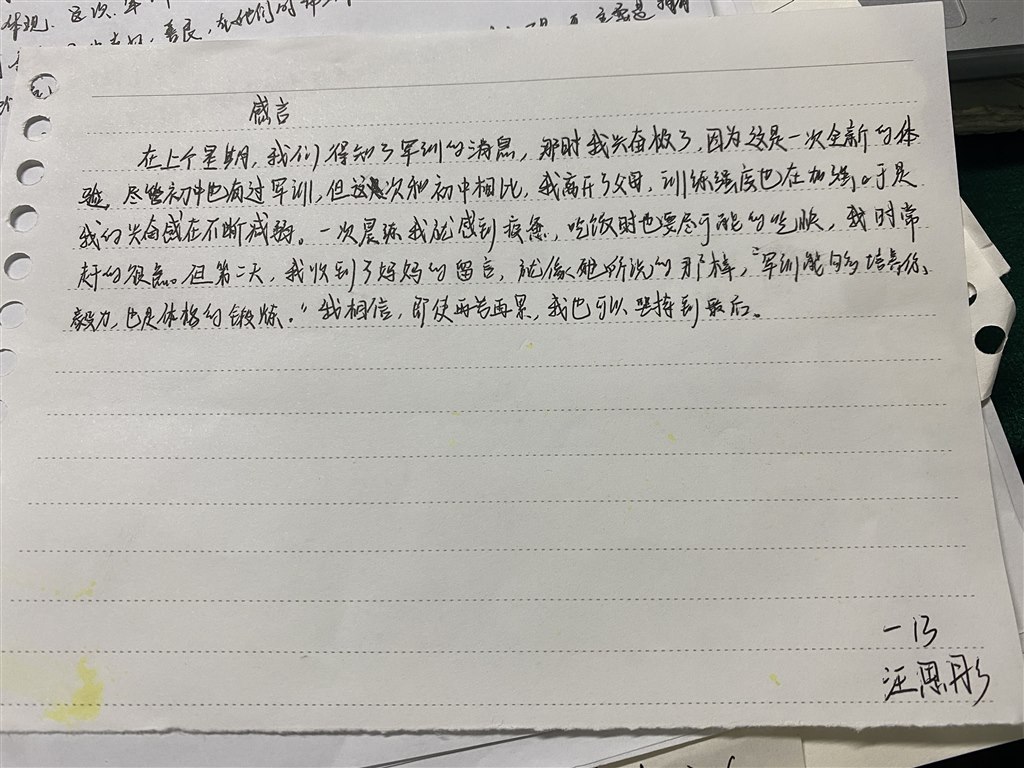 体现.这次军
善良,在他们的
主要是
感言
在上个星期,我们得知了军训的消息,那时我兴奋极了,因为这是一次全新的体
验,尽管初中也有过军训,但这次和初中相比,我离开了父母,训练强度也在加强。于是
我的兴奋感在不断减弱。一次晨练我就感到疲惫,吃饭时也要尽可能的吃快,我时常
赶的很急。但第二天,我收到了妈妈的留言,就像她所说的那样,“军训能够培养你
毅力,也是体格的锻炼。”我相信,即使再苦再累,我也可以坚持到最后。
一13
汪思彤